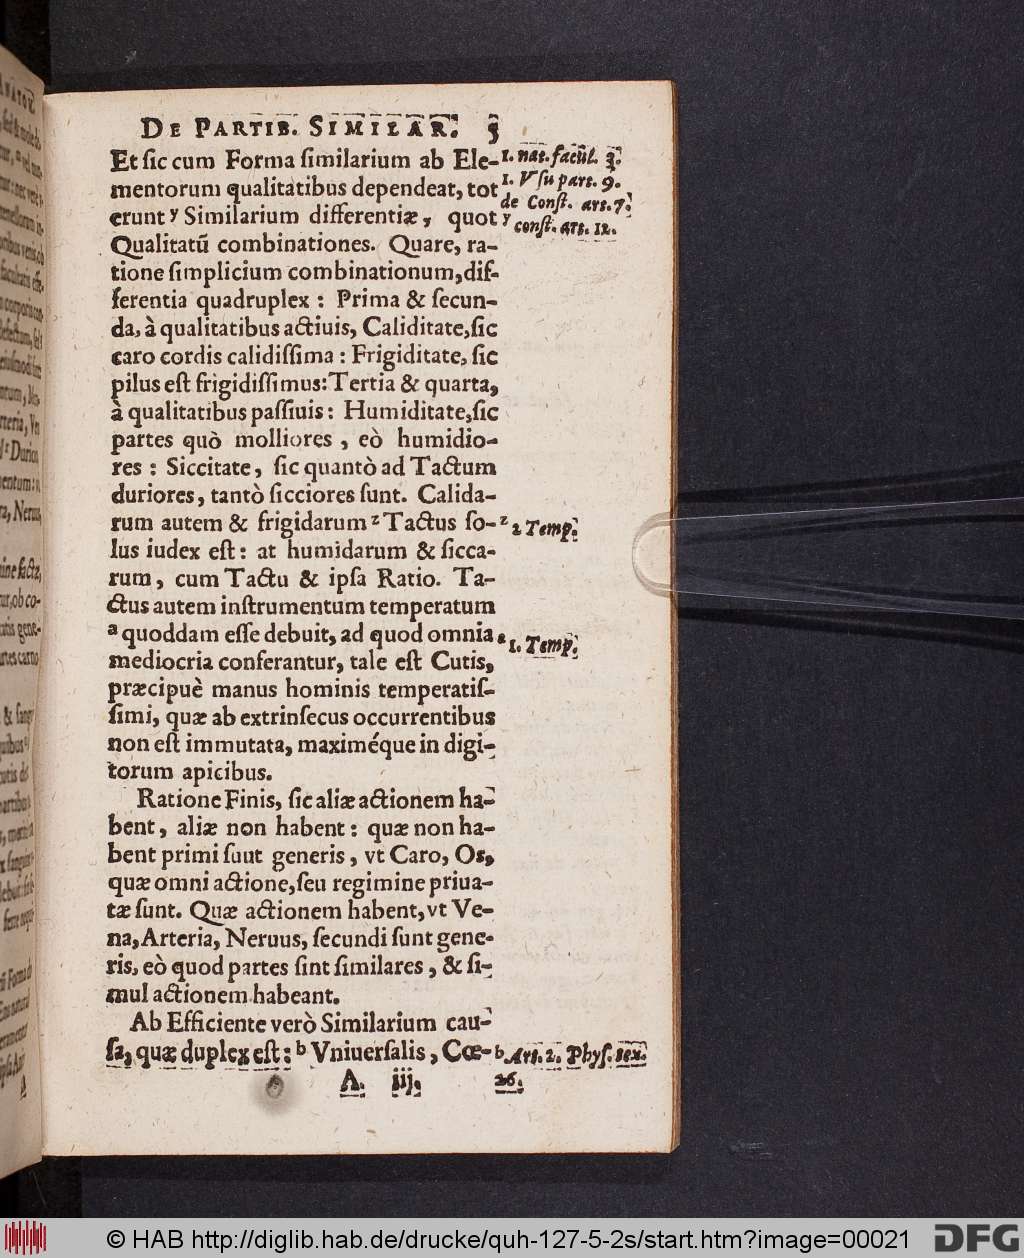 DE PARTIB. SIMILAR. 5
Et ſic cum Forma ſimilarium ab Ele-
mentorum qualitatibus dependeat, tot
erunt y Similarium differentiæ, quot
Qualitatũ combinationes. Quare, ra-
tione ſimplicium combinationum, dif-
ferentia quadruplex : Prima & ſecun-
da, à qualitatibus actiuis, Caliditate, ſic
caro cordis calidiſſima : Frigiditate, ſic
pilus eſt frigidiſſimus: Tertia & quarta,
à qualitatibus paſſiuis : Humiditate, ſic
partes quò molliores , eò humidio-
res : Siccitate, ſic quantò ad Tactum
duriores, tantò ſicciores ſunt. Calida-
rum autem & frigidarum z Tactus ſo-
lus iudex eſt : at humidarum & ſicca-
rum, cum Tactu & ipſa Ratio. Ta-
ctus autem inſtrumentum temperatum
a quoddam eſſe debuit, ad quod omnia
mediocria conferantur, tale eſt Cutis,
præcipuè manus hominis temperatiſ-
ſimi, quæ ab extrinſecus occurrentibus
non eſt immutata, maximéque in digi-
torum apicibus.
Ratione Finis, ſic aliæ actionem ha-
bent, aliæ non habent : quæ non ha-
bent primi ſuut generis, vt Caro, Os,
quæ omni actione, ſeu regimine priua-
tæ ſunt. Quæ actionem habent, vt Ve-
na, Arteria, Neruus, ſecundi ſunt gene-
ris, eò quod partes ſint ſimilares, & ſi-
mul actionem habeant.
Ab Efficiente verò Similarium cau-
ſa, quæ duplex eſt : b Vniuerſalis, Cœ-
A. iij.
1. nat. facul. 3.
1. Vſu part. 9.
de Conſt. art. 7.
y conſt. art. 12.
z 2 Temp.
a 1. Temp.
b Art. 2. Phyſ. tex.
26.
© HAB http://diglib.hab.de/drucke/quh-127-5-2s/start.htm?image=00021
DFG